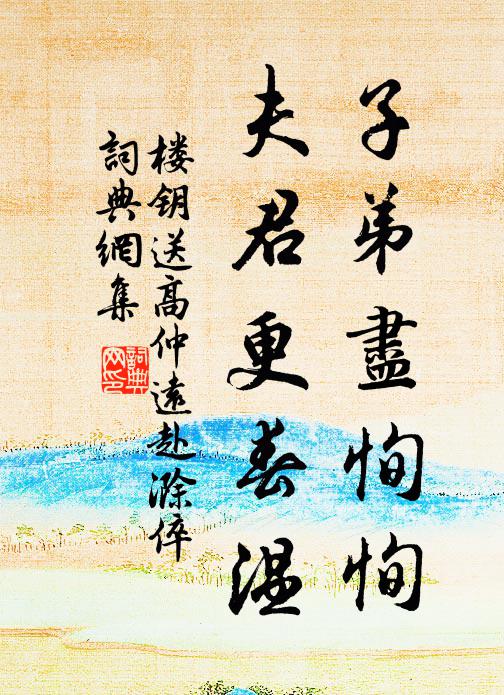 子弟盡恂恂
夫君更春温
楼钥送高仲遠赴滁倅
詞典網集
詞典网印